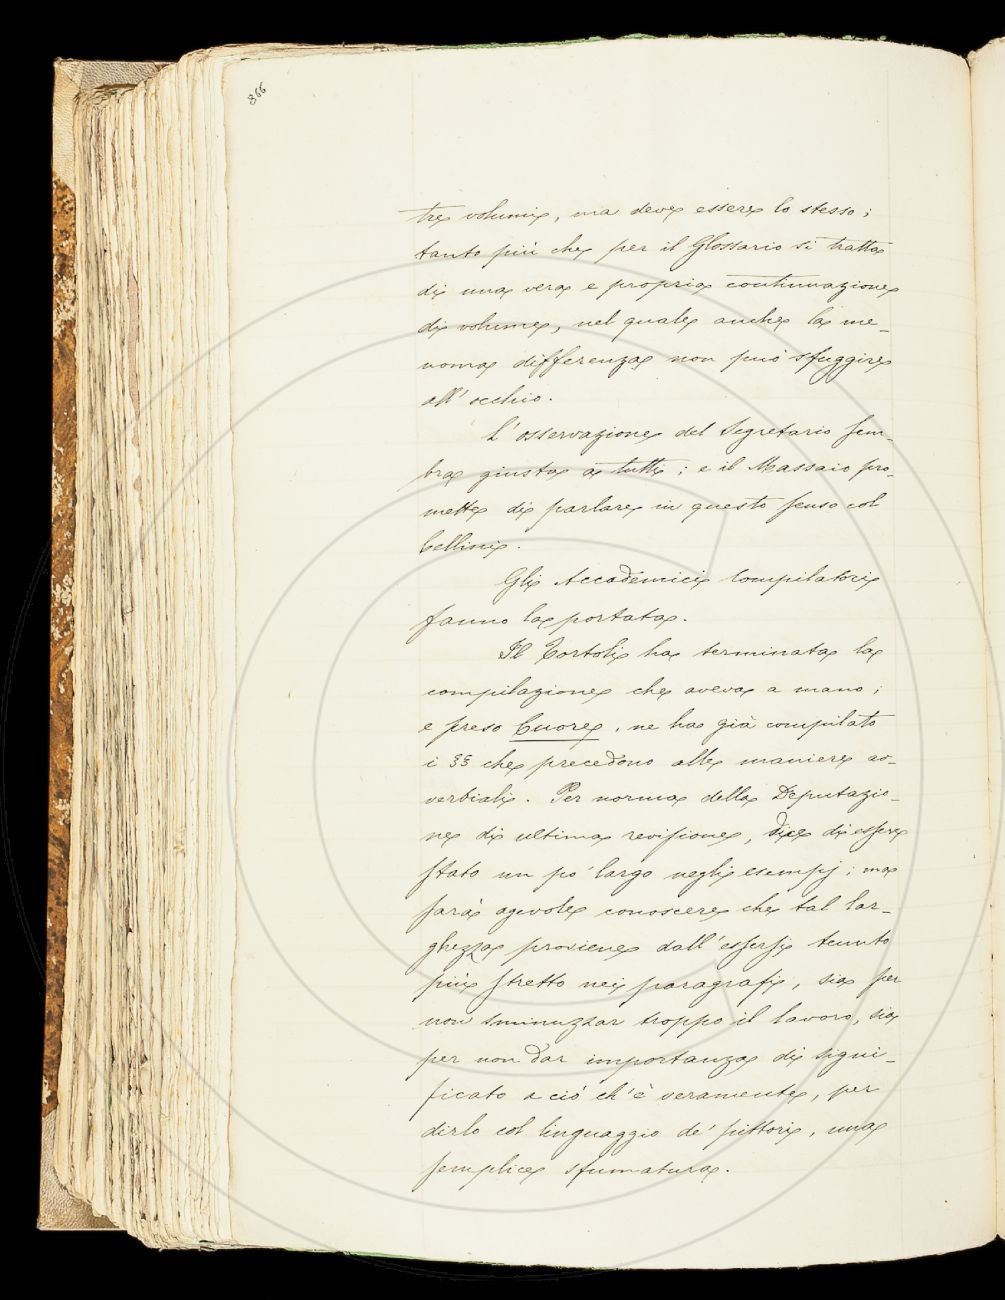 866
tre volumi, ma deve essere lo stesso;
tanto più che per il Glossario si tratta
di una vera e propria continuazione
di volume, nel quale anche la me-
noma differenza non può sfuggire
all'occhio.
L'osservazione del Segretario sem-
bra giusta a tutti; e il Massaio pro-
mette di parlare in questo senso col
Cellini.
Gli Accademici Compilatori
fanno la portata.
Il Tortoli ha terminata la
compilazione che aveva a mano;
e preso Cuore, ne ha già compilato
i §§ che precedono alle maniere av-
verbiali. Per norma della Deputazio-
ne di ultima revisione, dice di essere
stato un po' largo negli esempj; ma
sarà agevole conoscere che tal lar-
ghezza proviene dall'essersi tenuto
più stretto nei paragrafi, sia per
non sminuzzar troppo il lavoro, sia
per non dar importanza di signi-
ficato a ciò ch'è veramente, per
dirlo col linguaggio de' pittori, una
semplice sfumatura.